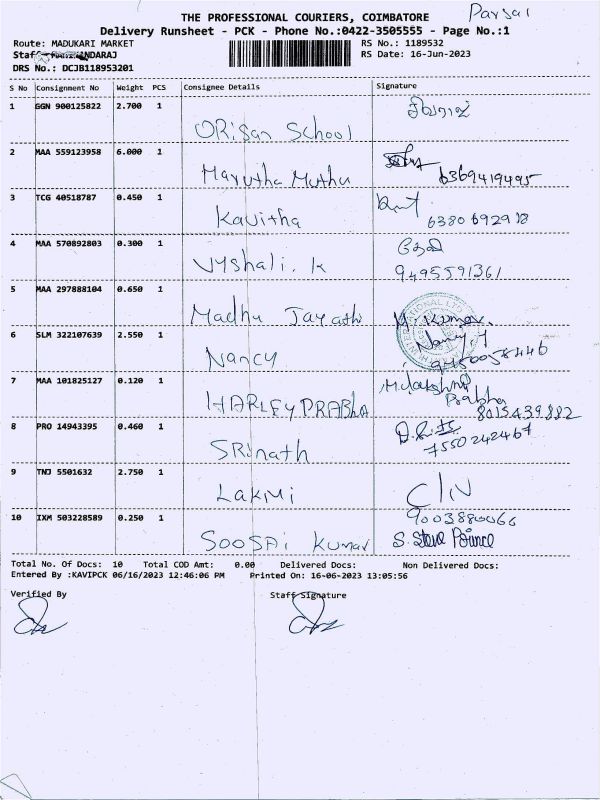 THE PROFESSIONAL COURIERS, COIMBATORE
Parsal
Delivery Runsheet - PCK - Phone No.:0422-3505555 - Page No.:1
Route: MADUKARI MARKET
RS No.: 1189532
RS Date: 16-Jun-2023
DRS No.: DCJB118953201
S No Consignment No Weight PCS Consignee Details Signature
1 GGN 900125822 2.700 1
ORisan School
2 MAA 559123958 6.000 1
Marutha Muthu 6369419495
3 TCG 40518787 0.450 1
Kavitha 6380692918
4 MAA 570892803 0.300 1 தேவி
Vyshali. K 9495591361
5 MAA 297888104 0.650 1
Madhu Jayathi M. Kumar.
6 SLM 322107639 2.550 1 Nancy.
Nancy
7 MAA 101825127 0.120 1 M. Lakshmi Prabha
HARLEY PRABhA 8015439882
8 PRO 14943395 0.460 1
SRinath 7550242467
9 TNJ 5501632 2.750 1
Lakmi
10 IXM 503228589 0.250 1 9003880066
SOOSAi Kumar S. Steve Prince
Total No. Of Docs: 10 Total COD Amt: 0.00 Delivered Docs: Non Delivered Docs:
Entered By :KAVIPCK 06/16/2023 12:46:06 PM Printed On: 16-06-2023 13:05:56
Verified By Staff Signature